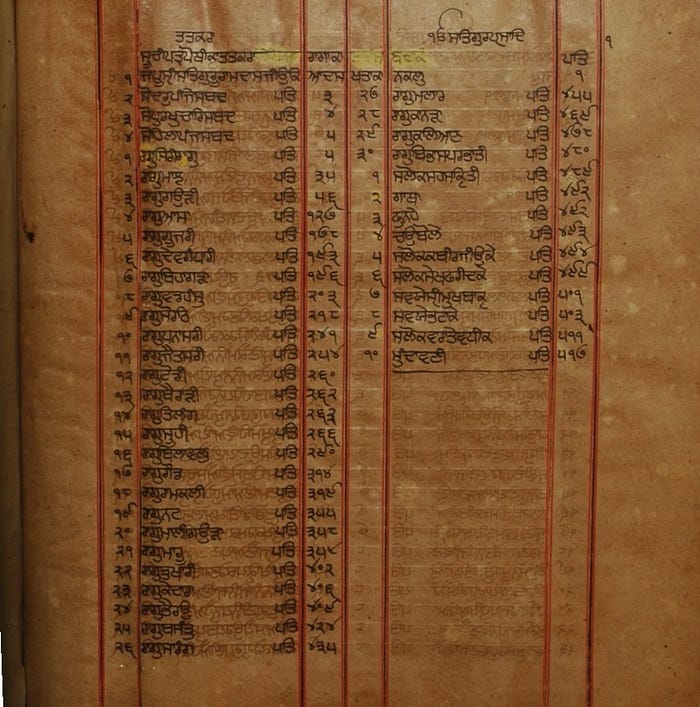 ਤਤਕਰਾ
ਸੂਚੀਪਤ੍ਰਪੋਥੀਕਾਤਤਕਰਾ ਰਾਗਾਕਾ
੧ ਜਪੁਸ੍ਰੀਸਤਿਗੁਰੂਰਾਮਦਾਸਜੀਉਕੇ ਖਤਕਾ ਨਕਲੁ ੧
੨ ਸੋਦਰੁਪਾਂਜਸਬਦ ਪਤਿ ੩
੩ ਸੋਪੁਰਖੁਚਾਰਿਸਬਦ ਪਤਿ ੪
੪ ਸੋਹਿਲਾਪਾਂਜਸਬਦ ਪਤਿ ੫
੧ ਰਾਗੁਸਿਰੀਰਾਗੁ ਪਤਿ ੫
੨ ਰਾਗੁਮਾਝ ਪਤਿ ੩੫
੩ ਰਾਗੁਗਉੜੀ ਪਤਿ ੫੬
੪ ਰਾਗੁਆਸਾ ਪਤਿ ੧੨੭
੫ ਰਾਗੁਗੂਜਰੀ ਪਤਿ ੧੭੮
੬ ਰਾਗੁਦੇਵਗੰਧਾਰੀ ਪਤਿ ੧੯੩
੭ ਰਾਗੁਬਿਹਾਗੜਾ ਪਤਿ ੧੯੬
੮ ਰਾਗੁਵਡਹੰਸੁ ਪਤਿ ੨੦੩
੯ ਰਾਗੁਸੋਰਠਿ ਪਤਿ ੨੧੮
੧੦ ਰਾਗੁਧਨਾਸਰੀ ਪਤਿ ੨੪੧
੧੧ ਰਾਗੁਜੈਤਸਰੀ ਪਤਿ ੨੫੪
੧੨ ਰਾਗੁਟੋਡੀ ਪਤਿ ੨੬੦
੧੩ ਰਾਗੁਬੈਰਾੜੀ ਪਤਿ ੨੬੨
੧੪ ਰਾਗੁਤਿਲੰਗ ਪਤਿ ੨੬੩
੧੫ ਰਾਗੁਸੂਹੀ ਪਤਿ ੨੬੬
੧੬ ਰਾਗੁਬਿਲਾਵਲੁ ਪਤਿ ੨੯੦
੧੭ ਰਾਗੁਗੋਂਡ ਪਤਿ ੩੧੪
੧੮ ਰਾਗੁਰਾਮਕਲੀ ਪਤਿ ੩੧੯
੧੯ ਰਾਗੁਨਟ ਪਤਿ ੩੫੫
੨੦ ਰਾਗੁਮਾਲੀਗਉੜਾ ਪਤਿ ੩੫੮
੨੧ ਰਾਗੁਮਾਰੂ ਪਤਿ ੩੫੯
੨੨ ਰਾਗੁਤੁਖਾਰੀ ਪਤਿ ੪੦੨
੨੩ ਰਾਗੁਕੇਦਾਰਾ ਪਤਿ ੪੦੬
੨੪ ਰਾਗੁਭੈਰਉ ਪਤਿ ੪੦੯
੨੫ ਰਾਗੁਬਸੰਤੁ ਪਤਿ ੪੨੪
੨੬ ਰਾਗੁਸਾਰੰਗ ਪਤਿ ੪੩੫
ੴ ਸਤਿਗੁਰਪ੍ਰਸਾਦਿ ੧
ਪਤਿ
੨੭ ਰਾਗੁਮਲਾਰ ਪਤਿ ੪੫੫
੨੮ ਰਾਗੁਕਾਨੜਾ ਪਤਿ ੪੬੯
੨੯ ਰਾਗੁਕਲਿਆਨ ਪਤਿ ੪੭੮
੩੦ ਰਾਗੁਬਿਭਾਸਪਰਭਾਤੀ ਪਤਿ ੪੮੦
੧ ਸਲੋਕਸਹਸਕ੍ਰਿਤੀ ਪਤਿ ੪੮੯
੨ ਗਾਥਾ ਪਤਿ ੪੯੨
੩ ਫੁਨਹੇ ਪਤਿ ੪੯੨
੪ ਚਉਬੋਲੇ ਪਤਿ ੪੯੩
੫ ਸਲੋਕਕਬੀਰਜੀਉਕੇ ਪਤਿ ੪੯੪
੬ ਸਲੋਕਸੇਖਫਰੀਦਕੇ ਪਤਿ ੪੯੯
੭ ਸਵਯੇਸ੍ਰੀਮੁਖਬਾਕ੍ਯ ਪਤਿ ੫੦੧
੮ ਸਵਯੇਭਟਾਕੇ ਪਤਿ ੫੦੩
੯ ਸਲੋਕਵਾਰਾਤੇਵਧੀਕ ਪਤਿ ੫੧੧
੧੦ ਮੁੰਦਾਵਣੀ ਪਤਿ ੫੧੭